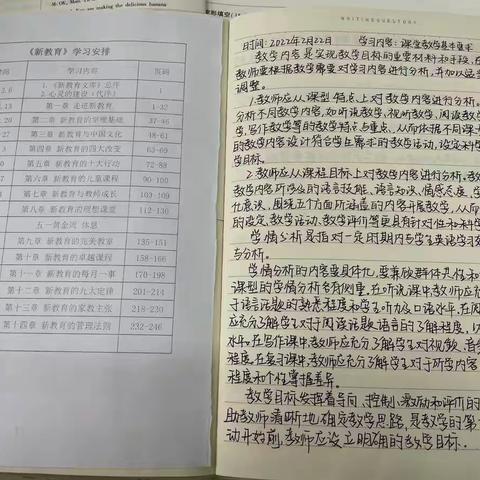 《新教育》学习安排
时间 学习内容 页码
2.6 1.《新教育文库》总序 1
2.心灵的建设（代序）
.13 第一章 走近新教育 1-32
.20 第二章 新教育的管理基础 37-46
.27 第三章 新教育与中国文化 48-61
第四章 新教育的四大改变 63-69
第五章 新教育的十大行动 72-88
第六章 新教育的儿童课程 90-100
第七章 新教育与教师成长 103-109
第八章 新教育的理想课堂 112-130
五一黄金周 休息
第九章 新教育的完美教室 135-151
第十章 新教育的卓越课程 158-166
第十一章 新教育的每月一事 170-198
第十二章 新教育的九大定律 201-214
第十三章 新教育的家教主张 218-230
第十四章 新教育的管理法则 232-246
时间：2022年2月22日 学习内容：课堂教学基本要求
教学内容是实现教学目标的重要材料和手段，在
教师要根据教学需要对学习内容进行分析，并加以适当
调整。
1.教师应从课型特点上对教学内容进行分析。
分析不同教学内容，如听说教学，视听教学，阅读教学
学，写作教学等的教学特点与重点，从而依据不同课型
的教学内容设计符合学生需求的教学活动，设定科学
学目标。
2.教师应从课程目标上对教学内容进行分析。教
教学内容所涉及的语言技能、语言知识、情感态度、学
化意识，围绕五个方面所涵盖的内容开展教学，从而
的设定、教学活动、教学评价等更具有针对性和科学
学情分析是指对一定时期内学生英语学习
与分析。
学情分析的内容要具体化，要兼顾群体共性和
课型的学情分析各有侧重。在听说课中教师应充
于语言话题的熟悉程度和学生听力及口语水平，在阅
应充分了解学生对于阅读话题、语言的了解程度，以
水平。在写作课中，教师应充分了解学生对视频、音
程度。在复习课中，教师应充分了解学生对于所学内容
程度和个性掌握差异。
教学目标发挥着导向、控制、激励和评价的
助教师清晰地确定教学思路，是教学的第
动开始前，教师应设立明确的教学目标。